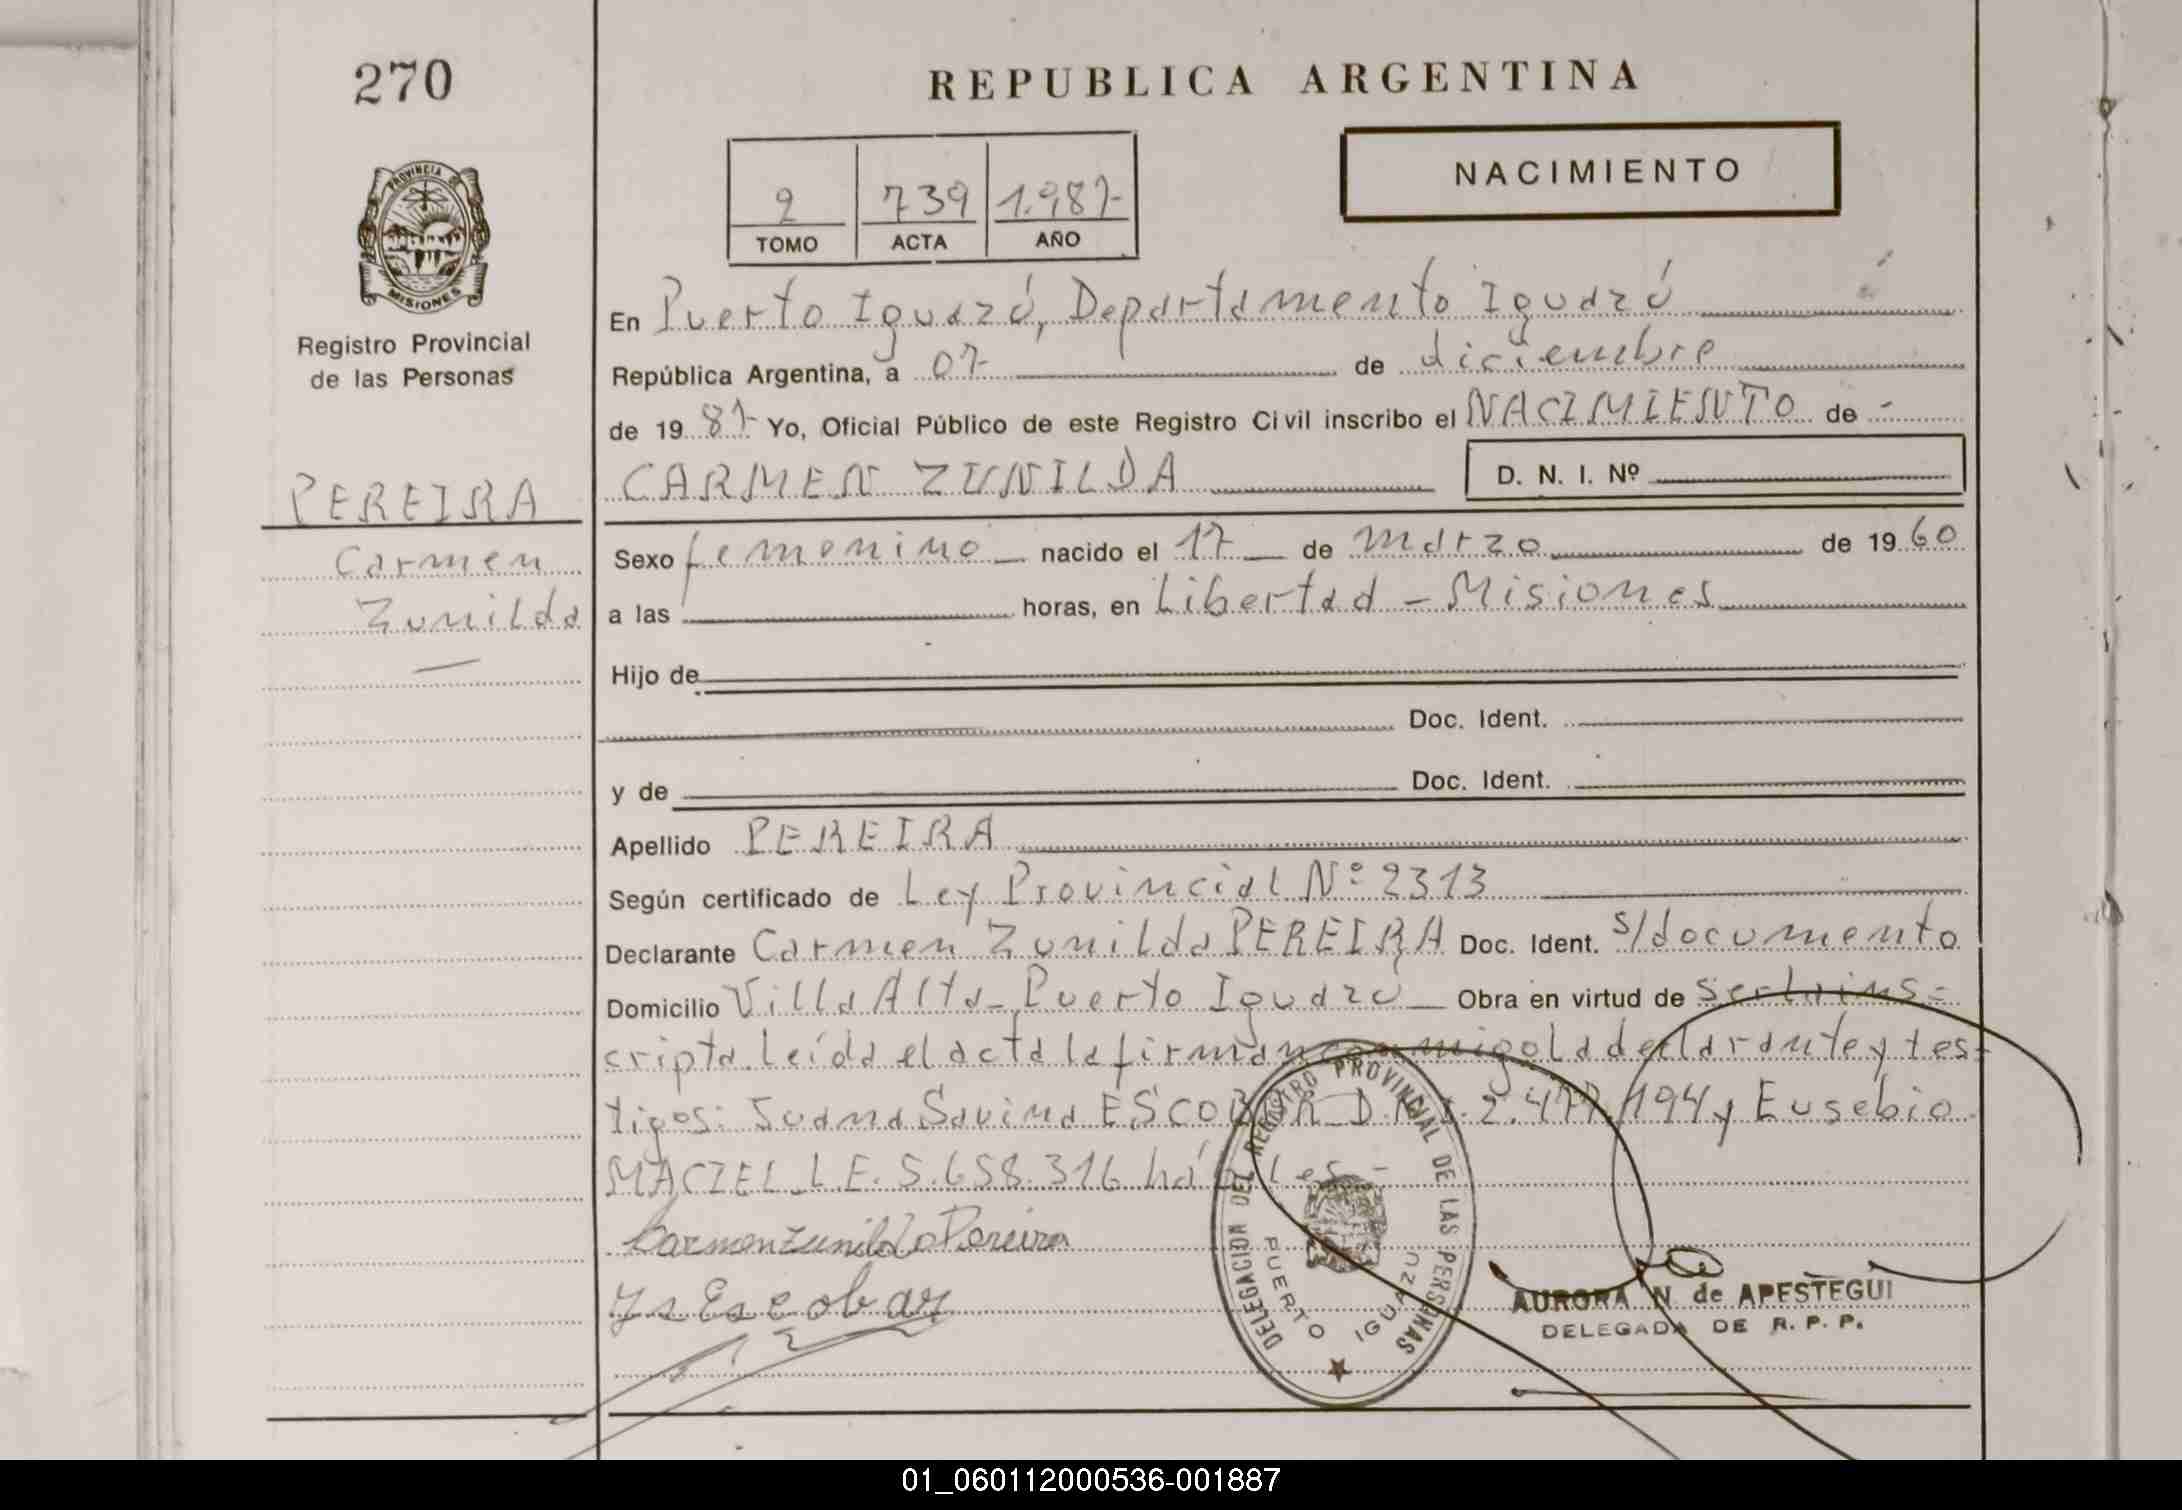 270
REPUBLICA ARGENTINA
NACIMIENTO
2 739 1.987-
TOMO ACTA AÑO
PROVINCIA DE MISIONES
Registro Provincial
de las Personas
En Puerto Iguazú, Departamento Iguazú
República Argentina, a 07- de diciembre
de 19 87- Yo, Oficial Público de este Registro Civil inscribo el NACIMIENTO de -
CARMEN ZUNILDA D. N. I. Nº
PEREIRA
Carmen
Zunilda
Sexo femenino nacido el 17 de marzo de 19 60
a las horas, en Libertad - Misiones
Hijo de
Doc. Ident.
y de Doc. Ident.
Apellido PEREIRA
Según certificado de Ley Provincial Nº 2313
Declarante Carmen Zunilda PEREIRA Doc. Ident. s/documento
Domicilio Villa Alta - Puerto Iguazú Obra en virtud de ser la ins-
cripta. Leída el acta la firman conmigo la declarante y tes-
tigos: Juana Savina ESCOBAR D.N.I. 2.477.194 y Eusebio
MACIEL L.E. 5.658.316 hábiles -
Carmen Zunilda Pereira
Escobar
DELEGACION DEL REGISTRO PROVINCIAL DE LAS PERSONAS
PUERTO IGUAZU
AURORA N. de APESTEGUI
DELEGADA DE R. P. P.
01_060112000536-001887